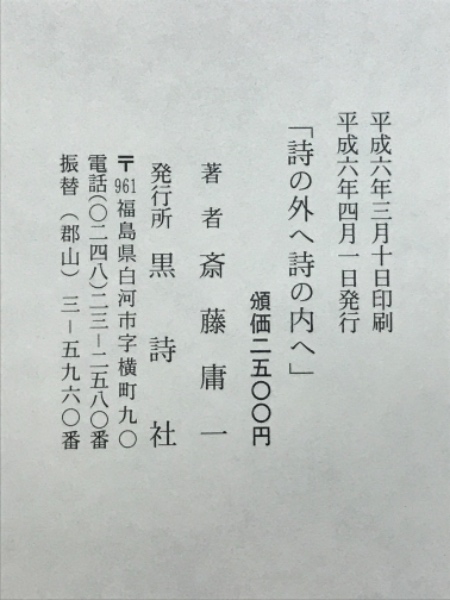 平成六年三月十日印刷
平成六年四月一日発行
「詩の外へ詩の内へ」
頒価二五〇〇円
著者 斎藤庸一
発行所 黒詩社
〒961福島県白河市字横町九〇
電話(〇二四八)二三―二五八〇番
振替 (郡山) 三―五九六〇番